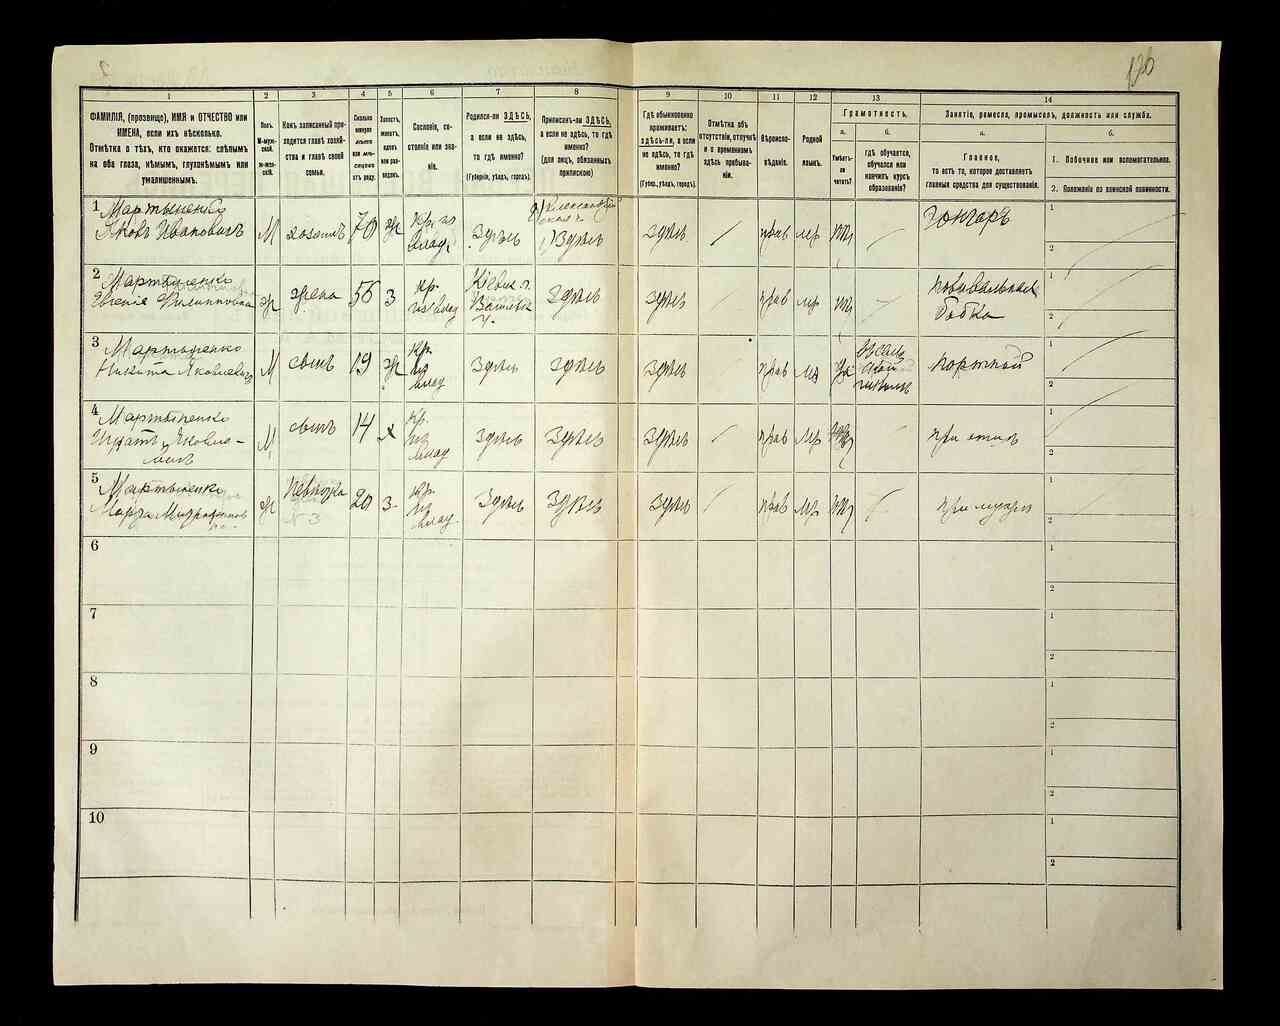 136
1
2
3
4
5
6
7
8
9
10
11
12
13
14
ФАМИЛІЯ, (прозвище), ИМЯ и ОТЧЕСТВО или
ИМЕНА, если ихъ нѣсколько.
Отмѣтка о тѣхъ, кто окажется: слѣпымъ
на оба глаза, нѣмымъ, глухонѣмымъ или
умалишеннымъ.
Полъ.
М-муж-
ской.
Ж-жен-
скій.
Какъ записанный при-
ходится главѣ хозяй-
ства и главѣ своей
семьи.
Сколько
минуло
лѣтъ
или мѣ-
сяцевъ
отъ роду.
Холостъ,
женатъ,
вдовъ
или раз-
веденъ.
Сословіе, со-
стояніе или зва-
ніе.
Родился-ли ЗДѢСЬ,
а если не здѣсь,
то гдѣ именно?
(Губернія, уѣздъ, городъ).
Приписанъ-ли ЗДѢСЬ,
а если не здѣсь, то гдѣ
именно?
(для лицъ, обязанныхъ
припискою)
Гдѣ обыкновенно
проживаетъ:
здѣсь-ли, а если
не здѣсь, то гдѣ
именно?
(Губер., уѣздъ, городъ).
Отмѣтка объ
отсутствіи, отлучкѣ
и о временномъ
здѣсь пребыва-
ніи.
Вѣроиспо-
вѣданіе.
Родной
языкъ.
Грамотность.
а.
Умѣетъ-
ли
читать?
б.
гдѣ обучается,
обучался или
кончилъ курсъ
образованія?
Занятіе, ремесло, промыселъ, должность или служба.
а.
Главное,
то есть то, которое доставляетъ
главныя средства для существованія.
б.
1. Побочное или вспомогательное.
2. Положеніе по воинской повинности.
1 Мартыненко
Яковъ Ивановичъ М хозяинъ 70 ж Кр. из влад. Здѣсь Здѣсь здѣсь прав мр Гончаръ
2 Мартыненко
Евгенія Филипповна ж жена 56 з кр. из влад Кіевск. г. здѣсь здѣсь прав мр повивальная
бабка
3 Мартыненко
Никита Яковлевичъ М сынъ 19 ж Кр. из влад здѣсь здѣсь здѣсь прав мр да портной
4 Мартыненко
Игнатъ Яковле-
вичъ М сынъ 14 х Кр. из влад здѣсь здѣсь здѣсь прав мр при отцѣ
5 Мартыненко
Марфа ж невѣстка 20 з Кр. из влад. здѣсь здѣсь здѣсь прав мр при мужѣ
№ 3
6
7
8
9
10
1
2
1
2
1
2
1
2
1
2
1
2
1
2
1
2
1
2
1
2